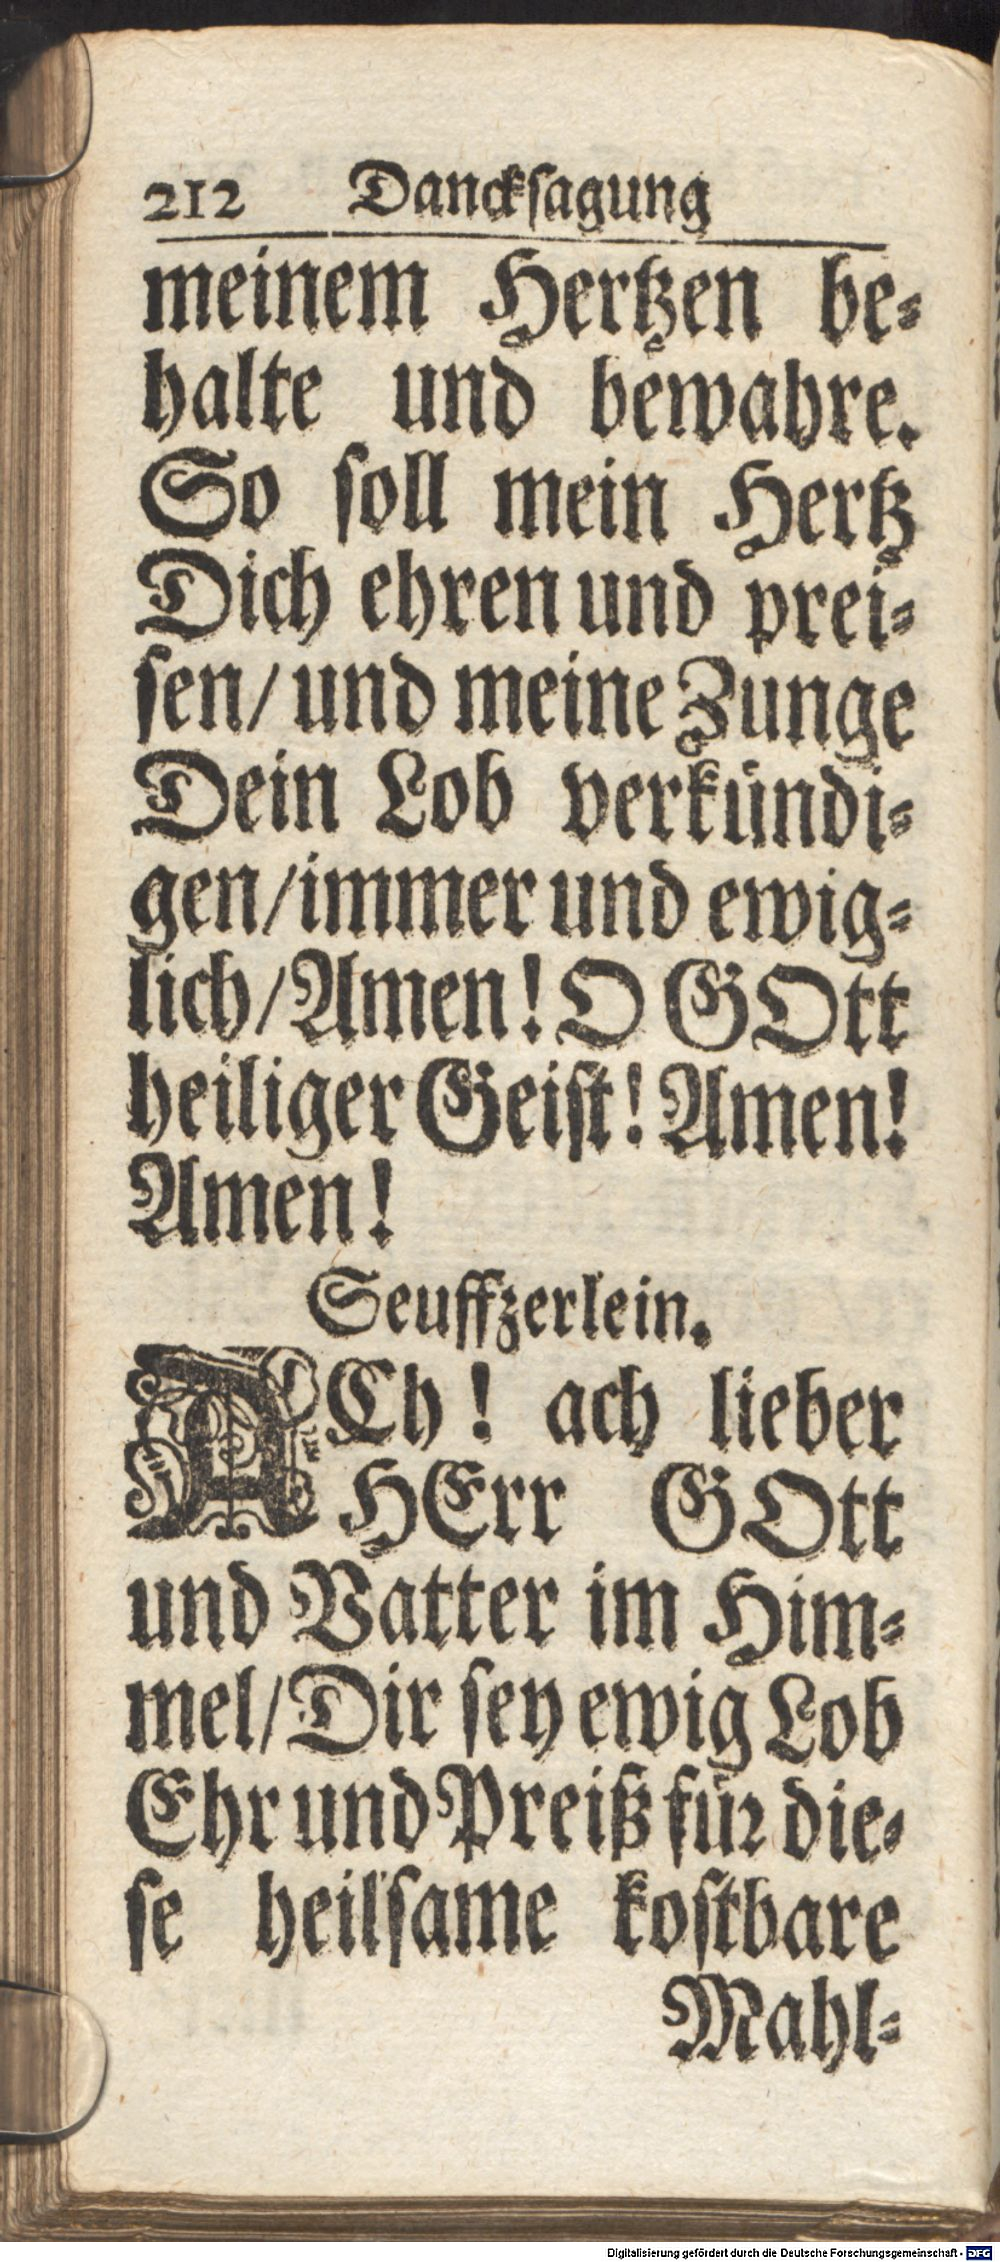 212 Danckſagung
meinem Hertzen be⸗
halte und bewahre.
So ſoll mein Hertz
Dich ehren und prei⸗
ſen/ und meine Zunge
Dein Lob verkündi⸗
gen/immer und ewig⸗
lich/Amen! O GOtt
heiliger Geiſt! Amen!
Amen!
Seuffzerlein.
ACh! ach lieber
HErr GOtt
und Vatter im Him⸗
mel/Dir ſey ewig Lob
Ehr und Preiß für die⸗
ſe heilſame koſtbare
Mahl⸗
Digitalisierung gefördert durch die Deutsche Forschungsgemeinschaft - DFG